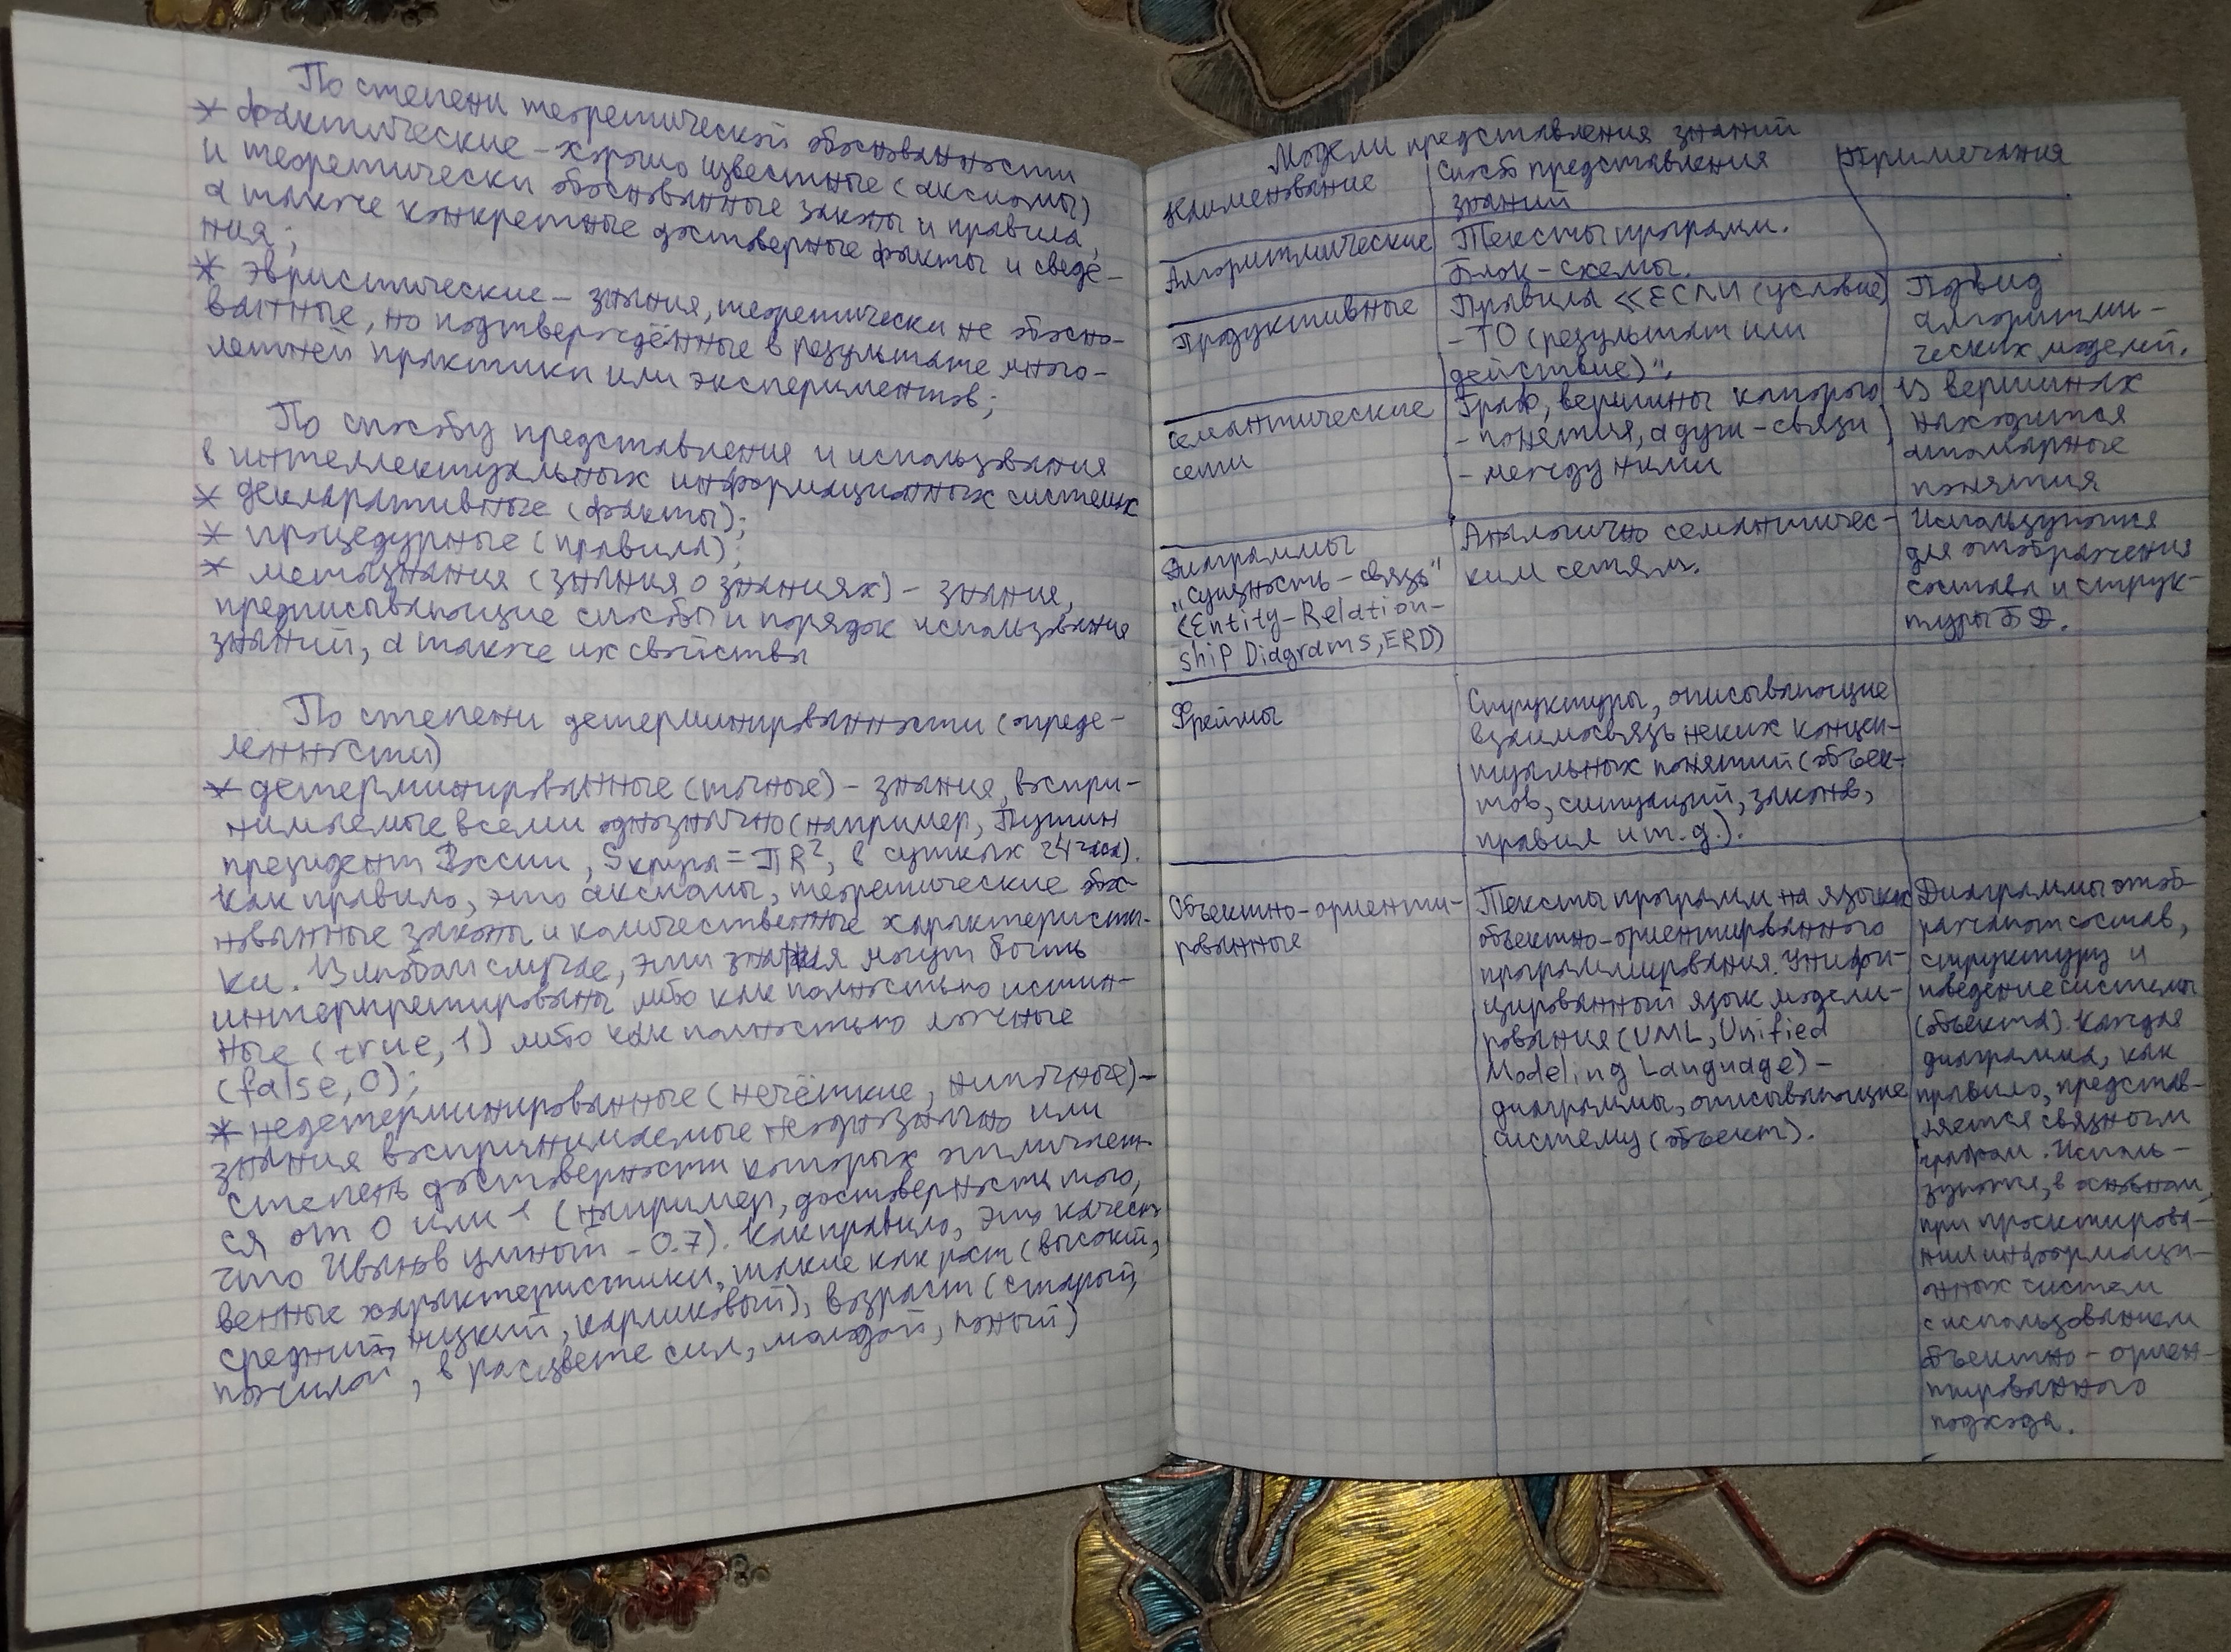 По степени теоретической обоснованности
* фактические - хорошо известные (аксиомы)
и теоретически обоснованные законы и правила,
а также конкретные достоверные факты и сведе-
ния;
* эвристические - знания, теоретически не обосно-
ванные, но подтверждённые в результате много-
летней практики или экспериментов;
По способу представления и использования
в интеллектуальных информационных системах
* декларативные (факты);
* процедурные (правила);
* метазнания (знания о знаниях) - знание,
предписывающие способы и порядок использования
знаний, а также их свойства
По степени детерминированности (опреде-
лённости)
* детерминированные (точные) - знания, воспри-
нимаемые всеми однозначно (например, Путин
президент России, Sкруга = πR², в сутках 24 часа).
Как правило, это аксиомы, теоретические обос-
нованные законы и количественные характеристи-
ки. В любом случае, эти знания могут быть
интерпретированы либо как полностью истин-
ные (true, 1) либо как полностью ложные
(false, 0);
* недетерминированные (нечёткие, неточные) -
знания воспринимаемые неоднозначно или
степень достоверности которых отличает-
ся от 0 или 1 (например, достоверность того,
что Иванов умный - 0.7). Как правило, это качест-
венные характеристики, такие как рост (высокий,
средний, низкий, карликовый), возраст (старый,
пожилой, в расцвете сил, молодой, юный)
Модели представления знаний
Наименование
Способ представления
знаний
Примечания
Алгоритмические
Тексты программ.
Блок-схемы.
Продуктивные
Правила «ЕСЛИ (условие)
- ТО (результат или
действие)".
Подвид
алгоритми-
ческих моделей.
семантические
сети
Граф, вершины которого
- понятия, а дуги - связи
- между ними
В вершинах
находится
атомарные
понятия
Диаграммы
„сущность - связь"
(Entity-Relation-
ship Diagrams, ERD)
Аналогично семантичес-
ким сетям.
Используются
для отображения
состава и струк-
туры БД.
Фреймы
Структуры, описывающие
взаимосвязь неких концеп-
туальных понятий (объек-
тов, ситуаций, законов,
правил и т.д.).
Объектно-ориенти-
рованные
Тексты программ на языках
объектно-ориентированного
программирования. Унифи-
цированный язык модели-
рования (UML, Unified
Modeling Language) -
диаграммы, описывающие
систему (объект).
Диаграммы отоб-
ражают состав,
структуру и
поведение системы
(объекта). Каждая
диаграмма, как
правило, представ-
ляется связным
графом. Исполь-
зуются, в основном,
при проектирова-
нии информаци-
онных систем
с использованием
объектно-ориен-
тированного
подхода.